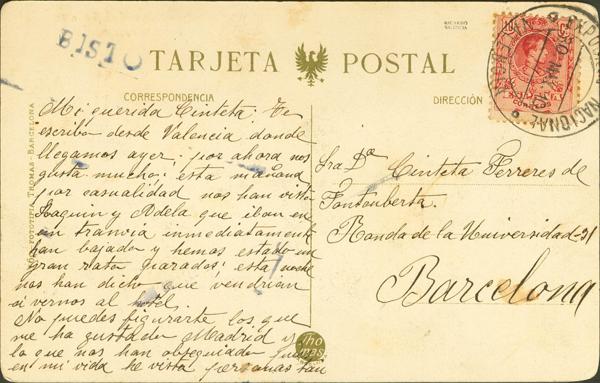 BISTO
TARJETA POSTAL
CORRESPONDENCIA
DIRECCIÓN
Mi querida Cinteta: Te
escribo desde Valencia donde
llegamos ayer; por ahora nos
gusta mucho; esta mañana
por casualidad nos han visto
Joaquin y Adela que iban en
un tranvia inmediatamente
han bajado y hemos estado un
gran rato parados; esta noche
nos han dicho que vendrian
a vernos al hotel.
No puedes figurarte los que
me ha gustado Madrid y
lo que nos han obsequiado pues
en mi vida he visto personas tan
Sra Da Cinteta Ferreres de
Fontcuberta.
Ronda de la Universidad-31
Barcelona
FOTOTIPIA THOMAS-BARCELONA
thomas
EXPOSICIÓN NACIONAL
VALENCIA